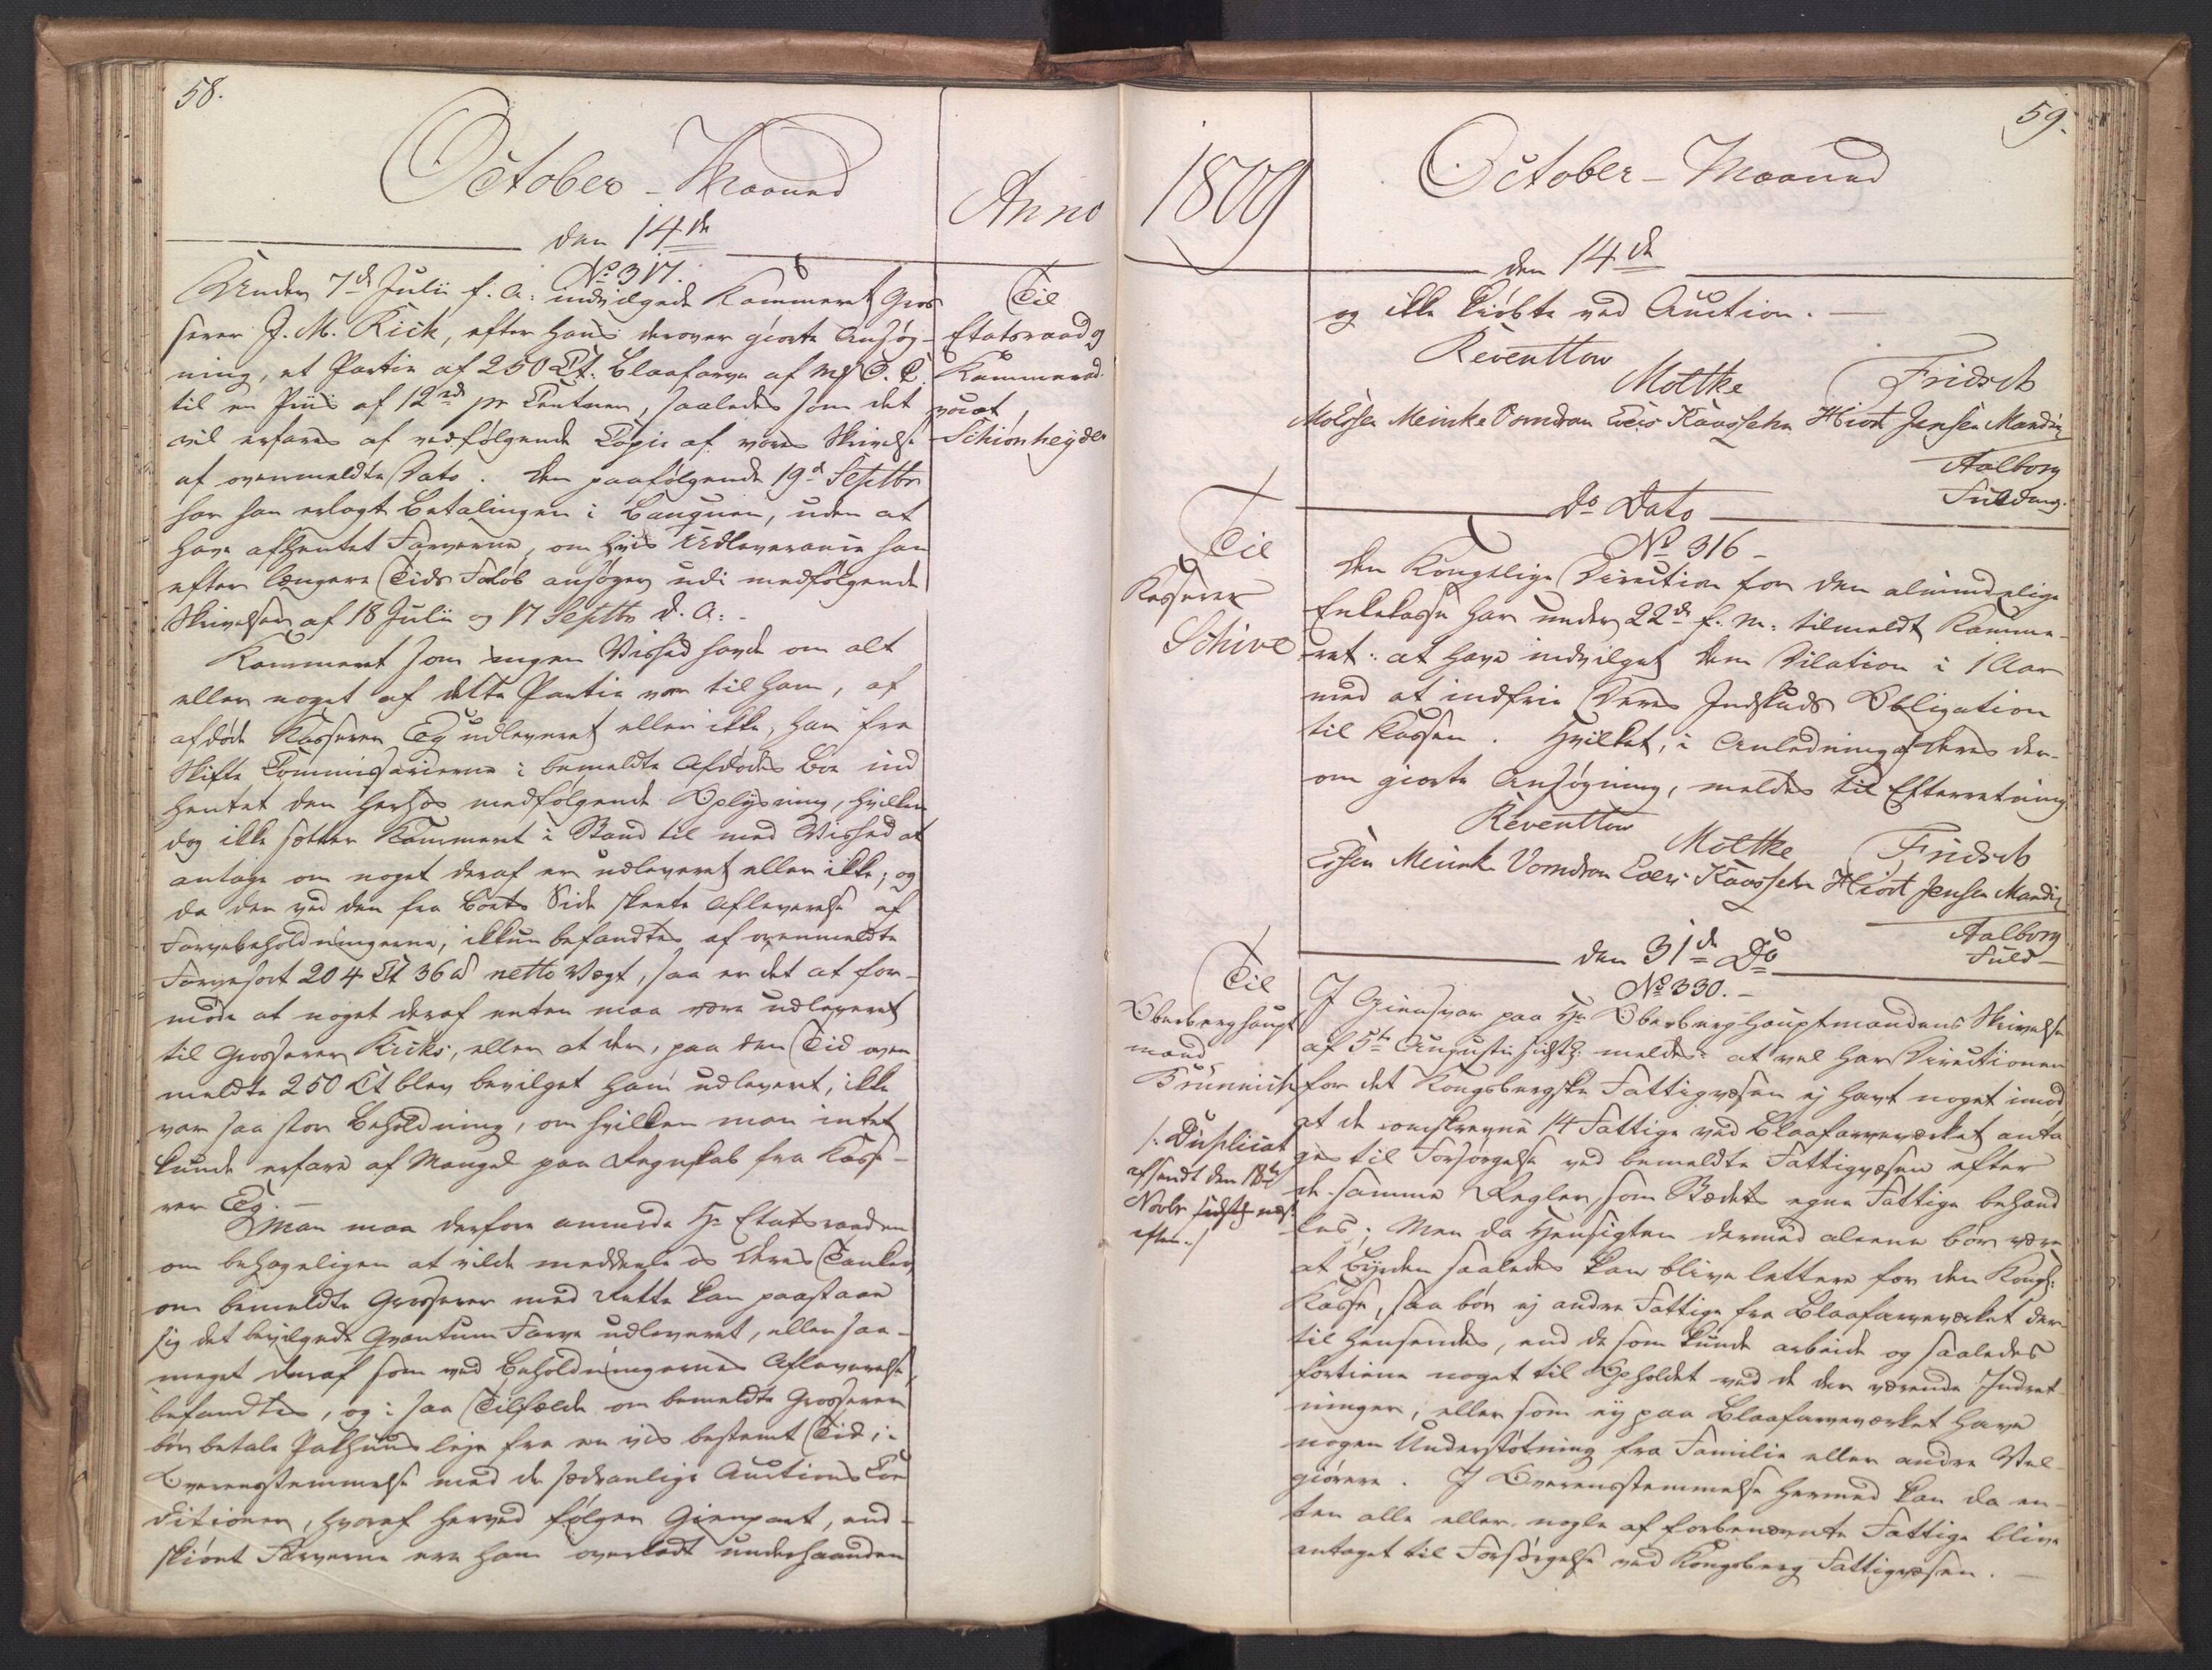 58.
October-Maaned
Anno
den 14de
No 317.
Under 7de Julii f. A: indvilgede Kammeret Gros
serer J. M. Kick, efter hans derover giorte Ansøg-
ning, et Partie af 250 Ct. Blaafarve af
til en Priis af 12 rd pr Centner, saaledes som det
vil erfares af vedfølgende Copie af vores Skrivelse
af ovenmeldte Dato. Den paafølgende 19d Septbr
har han erlagt Betalingen i Banquen, uden at
have afhentet Farverne, om hvis Udleverance han
efter længere Tids Forløb ansøger udi medfølgende
Skrivelser af 18 Julii og 17 Septbr d. A: -
Kammeret som ingen Vished havde om alt
eller noget af dette Partie var til ham, af
afdøde Kasserer Eg udleveret eller ikke, har fra
Skifte Commissarierne i bemeldte Afdødes Boe ind
hentet den herhos medfølgende Oplysning, hvilken
dog ikke sætter Kammeret i Stand til med Vished at
antage om noget deraf er udleveret eller ikke; og
da der ved den fra Boets Side skeete Afleverelse af
Farvebeholdningerne, ikkun befandtes af ovenmeldte
Farvesort 204 Ct 36 lb netto Vægt, saa er det at for-
mode at noget deraf enten maa være udleveret
til Grosserer Kicks, eller at der, paa den Tid oven
meldte 250 Ct blev bevilget ham udleveret, ikke
var saa stor Beholdning, om hvilken man intet
kunde erfare af Mangel paa Regnskab fra Kasse-
rer Eg. -
Man maa derfore anmode Hr Etatsraaden
om behageligen at vilde meddeele os Deres Tanker
om bemeldte Grosserer med Rette kan paastaae
sig det bevilgede Qvantum Farve udleveret, eller saa-
meget deraf som ved Beholdningernes Afleverelse,
befandtes, og i saa Tilfælde om bemeldte Grosserer
bør betale Pakhuus leje fra en vis bestemt Tid, i
Overensstemmelse med de sædvanlige Auctions Con
ditioner, hvoraf herved følger Gienpart, end-
skiønt Farverne ere ham overladt underhaanden
Til
Etatsraad og
Kammerad-
vocat,
Schiønheyder
1809
October-Maaned
59.
den 14de
og ikke kiøbte ved Auction. -
Reventlow
Moltke
Fridsch
Meinke Vomdran Evers Kaassehn Hiort Jensen Mandix
Aalborg
Fuldm.
Do Dato
No 316 -
Til
Kasserer
Schive
Den Kongelige Direction for den almindelige
Enkekasse har under 22de f. M: tilmeldt Kamme-
ret: at have indvilget Dem Dilation i 1 Aar
med at indfrie Deres Indskuds Obligation
til Kassen. Hvilket, i Anledning af Deres der-
om giorte Ansøgning, meldes til Efterretning
Reventlow
Moltke
Fridsch
Essen Meinke Vomdran Evers Kaassehn Hiort Jensen Mandix
Aalborg
Fuld
den 31te Do
No 330. -
Til
Oberberghaupt
mand
Brünnich
/: Duplicat
afsendt den 18de
Novbr næst
efter :/
I Giensvar paa Hr Oberberghauptmandens Skrivelse
af 5te Augusti sidstl: meldes: at vel har Directionen
for det Kongsbergske Fattigvæsen ej havt noget imod
at de omskrevne 14 Fattige ved Blaafarveværket anta
ges til Forsørgelse ved bemeldte Fattigvæsen efter
de samme Regler, som Stædets egne Fattige behand
les; Men da Hensigten dermed aleene bør være
at Byrden saaledes kan blive lettere for den Kongl:
Kasse, saa bør ej andre Fattige fra Blaafarveværket der
til hensendes, end de som kunde arbeide og saaledes
fortiene noget til Opholdet ved de der værende Indret-
ninger, eller som ey paa Blaafarveværket have
nogen Understøtning fra Familie eller andre Vel-
giørere. I Overensstemmelse hermed kan da en-
ten alle eller nogle af forbenævnte Fattige blive
antaget til Forsørgelse ved Kongsberg Fattigvæsen. -